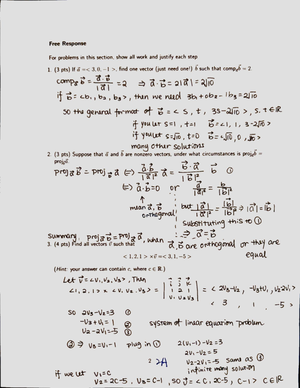 Free Response
For problems in this section, show all work and justify each step
1. (3 pts) If a⃗ =< 3, 0, −1 >, find one vector (just need one!) b⃗ such that comp_a⃗ b⃗ = 2.
comp_a⃗ b⃗ = a⃗·b⃗ / |a⃗| = 2 ⇒ a⃗·b⃗ = 2|a⃗| = 2√10
if b⃗ = <b₁, b₂, b₃>, then we need 3b₁+0b₂−1b₃ = 2√10
So the general format of b⃗ = < s, t, 3s−2√10 >, s, t ∈ ℝ
if you let s=1, t=1 b⃗ = <1, 1, 3−2√10>
if you let s=√10, t=0 b⃗ = <√10, 0, √10>
many other solutions
2. (3 pts) Suppose that a⃗ and b⃗ are nonzero vectors, under what circumstances is proj_a⃗ b⃗ =
proj_b⃗ a⃗
proj_a⃗ b⃗ = proj_b⃗ a⃗ ⇔ a⃗·b⃗ / |a⃗|² a⃗ = b⃗·a⃗ / |b⃗|² b⃗ ①
⇔ a⃗·b⃗ = 0 or a⃗/|a⃗|² = b⃗/|b⃗|²
mean a⃗, b⃗ orthogonal
but |a⃗|/|a⃗|² = |b⃗|/|b⃗|² ⇒ |a⃗| = |b⃗|
Substituting this to ①
⇒ a⃗ = b⃗
Summary, proj_a⃗ b⃗ = proj_b⃗ a⃗, when a⃗, b⃗ are orthogonal or they are equal
3. (4 pts) Find all vectors v⃗ such that
< 1, 2, 1 > ×v⃗ =< 3, 1, −5 >
(Hint: your answer can contain c, where c ∈ ℝ.)
Let v⃗ = <v₁, v₂, v₃>, Then
<1, 2, 1> × <v₁, v₂, v₃> = | i⃗ j⃗ k⃗ 1 2 1 v₁ v₂ v₃ | = < 2v₃−v₂, −v₃+v₁, v₂−2v₁ >
< 3, 1, −5 >
so 2v₃−v₂=3 ①
−v₃+v₁=1 ②
v₂−2v₁=−5 ③
system of linear equation problem
② ⇒ v₃=v₁−1 plug in ① 2(v₁−1)−v₂=3
2v₁−v₂=5
v₂−2v₁=−5 same as ③
infinite many solution
if we let v₁=c
v₂=2c−5, v₃=c−1, so v⃗ = < c, 2c−5, c−1 > c∈ℝ